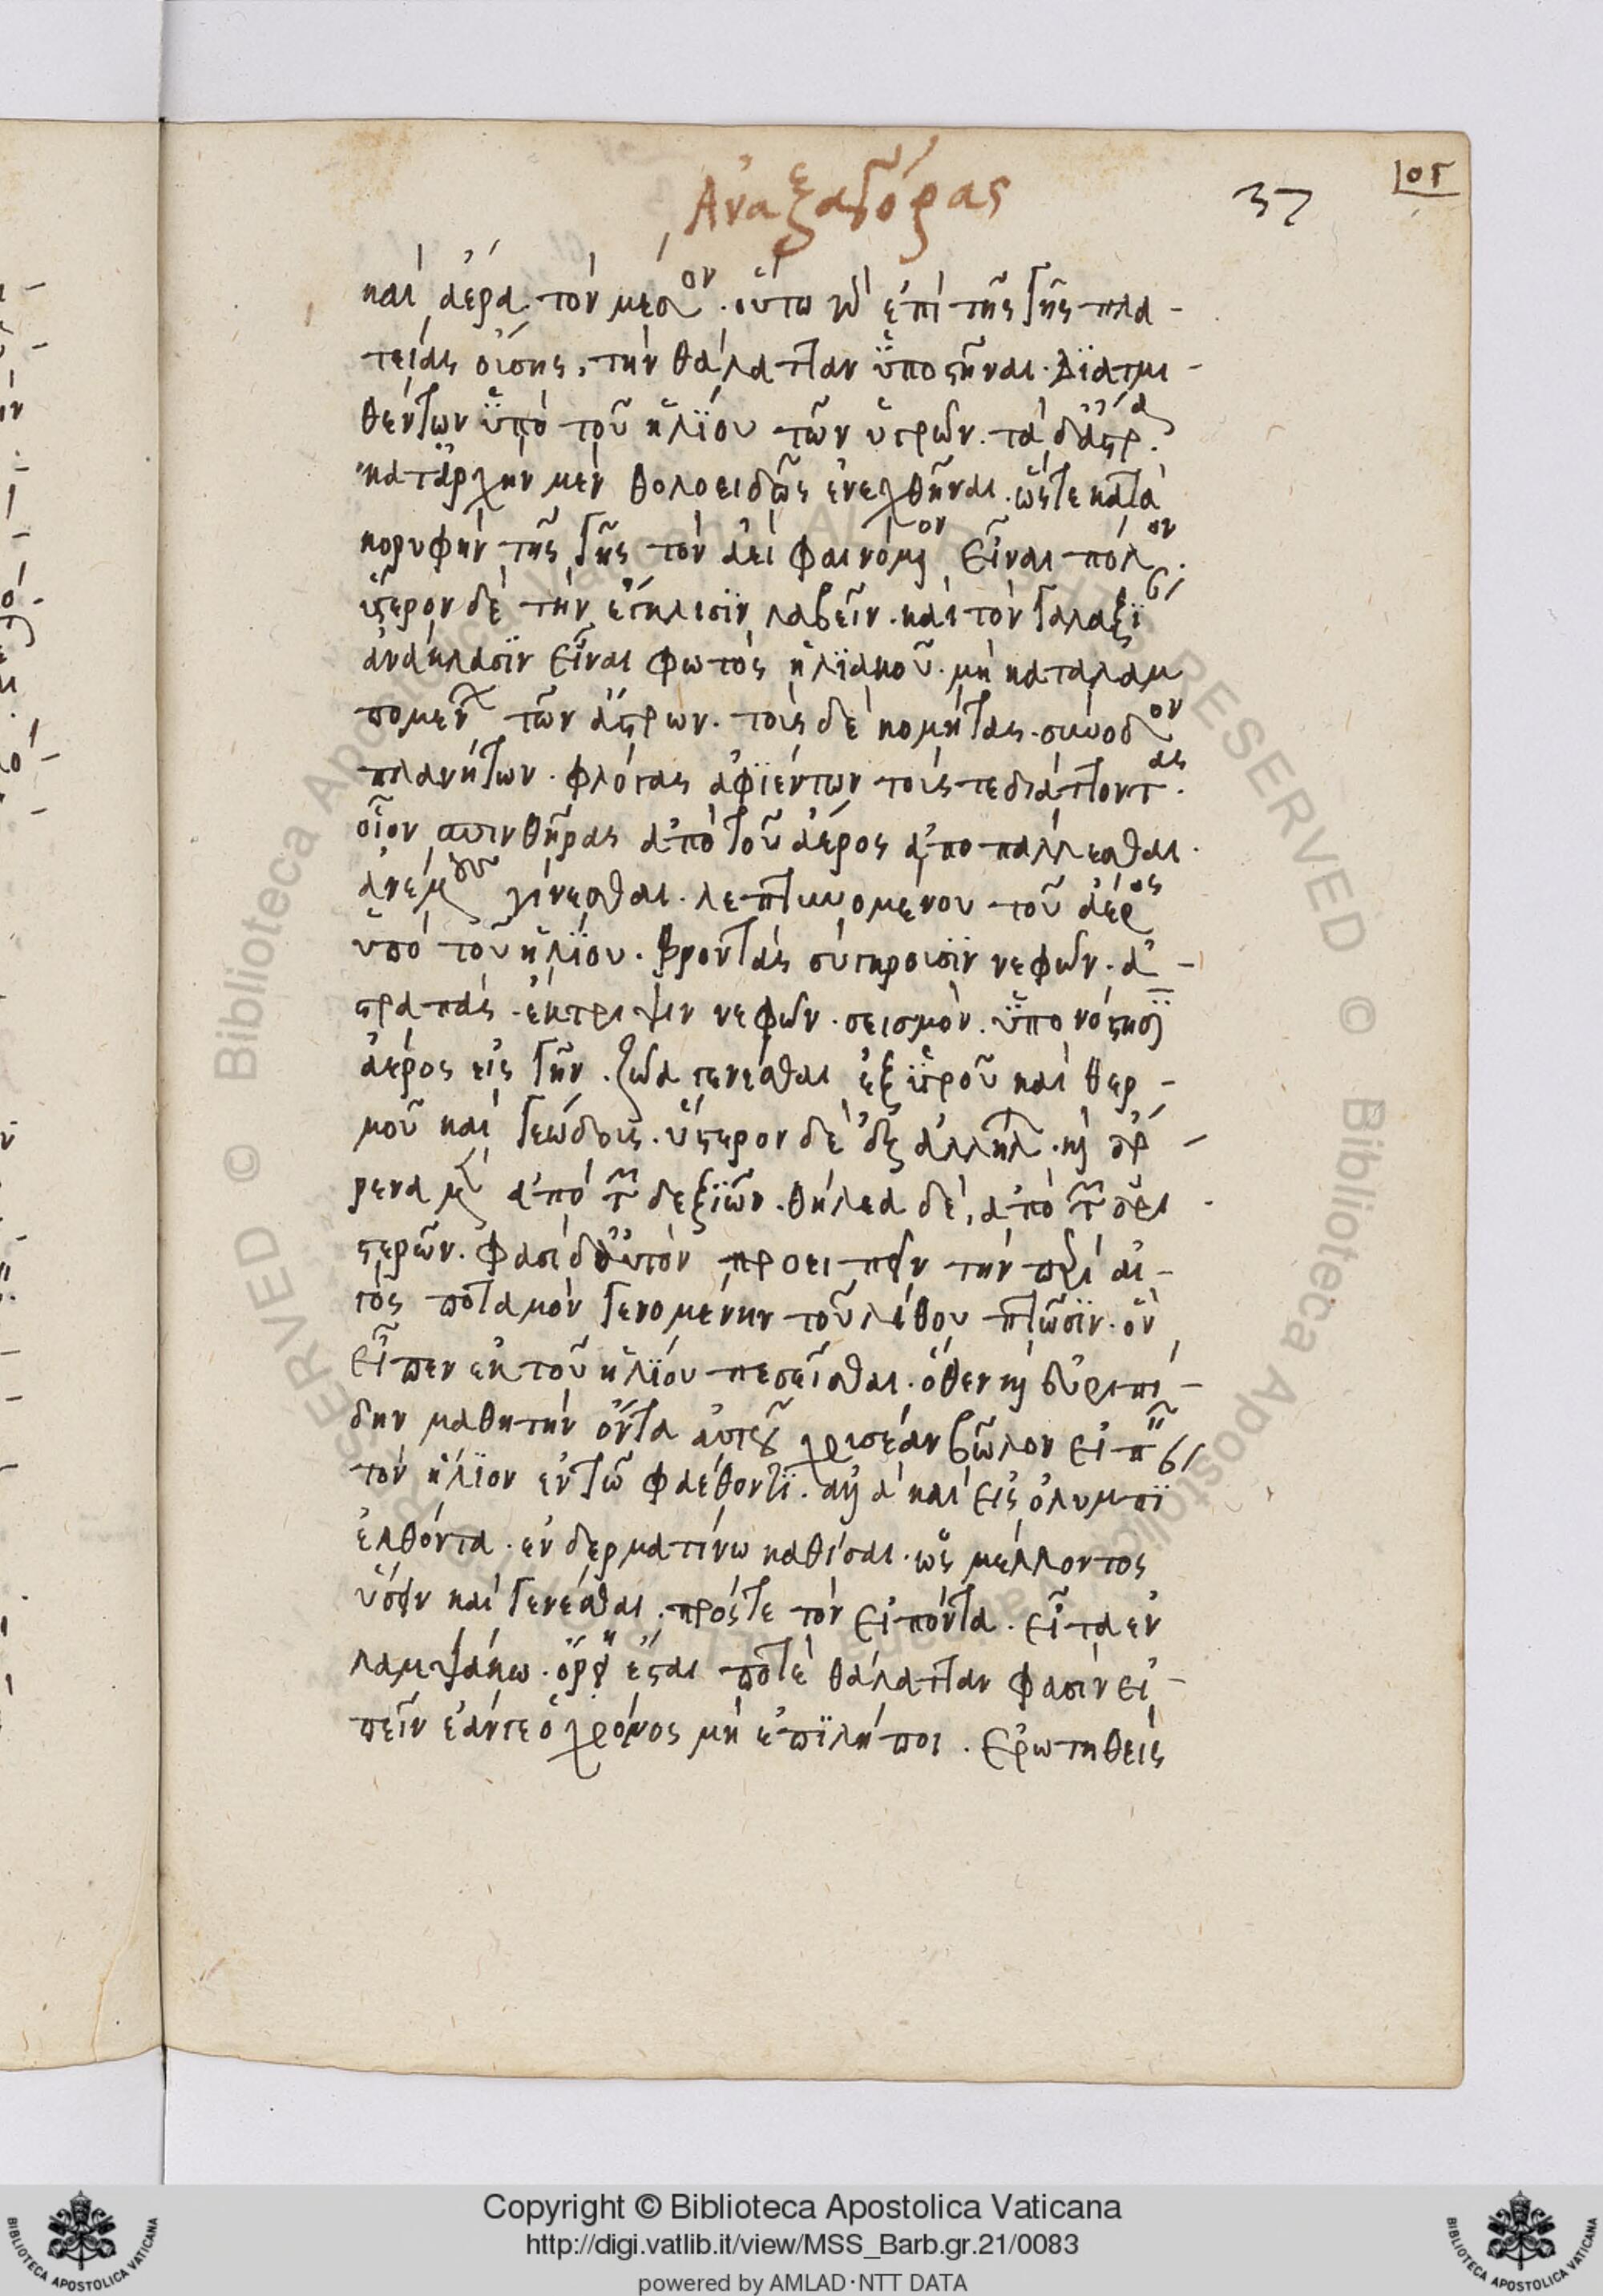 Ἀναξαγόρας
37
105
καὶ ἀέρα τὸν μέσον. οὕτω γὰρ ἐπὶ τῆς γῆς πλα-
τείας οὔσης, τὴν θάλατταν ὑποστῆναι. διατμι-
θέντων ὑπὸ τοῦ ἡλίου τῶν ὑγρῶν. τὰ δ' ἄστρα
κατ' ἀρχὴν μὲν θολοειδῶς ἐνεχθῆναι. ὥστε κατὰ
κορυφὴν τῆς γῆς τὸν ἀεὶ φαινόμενον εἶναι πόλον.
ὕστερον δὲ τὴν ἔγκλισιν λαβεῖν. καὶ τὸν γαλαξί
ἀνάκλασιν εἶναι φωτὸς ἡλιακοῦ. μὴ καταλαμ
πομένων τῶν ἄστρων. τοὺς δὲ κομήτας. σύνοδον
πλανήτων. φλόγας ἀφιέντων τούς τε διάττοντας.
οἷον σπινθῆρας ἀπὸ τοῦ ἀέρος ἀποπάλλεσθαι.
ἀνέμους γίνεσθαι. λεπτυνομένου τοῦ ἀέρος
ὑπὸ τοῦ ἡλίου. βροντὰς σύγκρουσιν νεφῶν. ἀ-
στραπὰς ἔκτριψιν νεφῶν. σεισμὸν. ὑπονόστησιν
ἀέρος εἰς γῆν. ζῶα γενέσθαι ἐξ ὑγροῦ καὶ θερ-
μοῦ καὶ γεώδους. ὕστερον δὲ ἐξ ἀλλήλων. καὶ ἄρ-
ρενα μὲν ἀπὸ τῶν δεξιῶν. θήλεα δὲ, ἀπὸ τῶν ἀρι
στερῶν. φασὶ δ' αὐτὸν προειπεῖν τὴν περὶ αἰ-
γὸς ποταμὸν γενομένην τοῦ λίθου πτῶσιν. ὃν
εἶπεν ἐκ τοῦ ἡλίου πεσεῖσθαι. ὅθεν καὶ εὐριπί-
δην μαθητὴν ὄντα αὐτοῦ χρυσέαν βῶλον εἰπεῖν
τὸν ἥλιον ἐν τῶ φαέθοντι. ἀλλὰ καὶ εἰς ὀλυμπί
ἐλθόντα. ἐν δερματίνω καθίσαι. ὡς μέλλοντος
ὕσειν καὶ γενέσθαι. πρός τε τὸν εἰπόντα. εἰ τὰ ἐν
λαμψάκω. ὄρη ἔσται ποτὲ θάλατταν φασὶν εἰ-
πεῖν ἐάν γε ὁ χρόνος μὴ ἐπιλήποι. ἐρωτηθεὶς
Copyright © Biblioteca Apostolica Vaticana
http://digi.vatlib.it/view/MSS_Barb.gr.21/0083
powered by AMLAD·NTT DATA